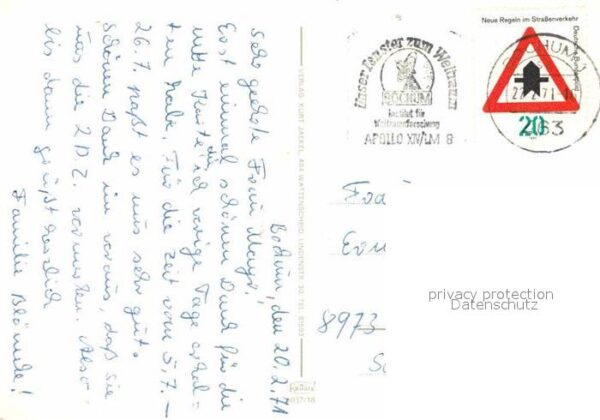 Bochum, den 20.2.71
Sehr geehrte Frau Mayr!
Erst einmal schönen Dank für die
nette Karte, die ich vorige Tage erhal-
ten habe. Für die Zeit vom 5.7. –
26.7. paßt es uns sehr gut.
Schönen Dank im voraus, daß Sie
uns die 2 D.Z. vormerken. Also
bis dann grüßt herzlich
Familie
VERLAG KURT JAEKEL 464 WATTENSCHEID LINDENSTR.
Unser Fenster zum Weltraum
BOCHUM
Institut für
Weltraumforschung
APOLLO XIV/LM 8
Neue Regeln im Straßenverkehr
Deutsche Bundespost
20
BOCHUM 1
463
8973
privacy protection
Datenschutz